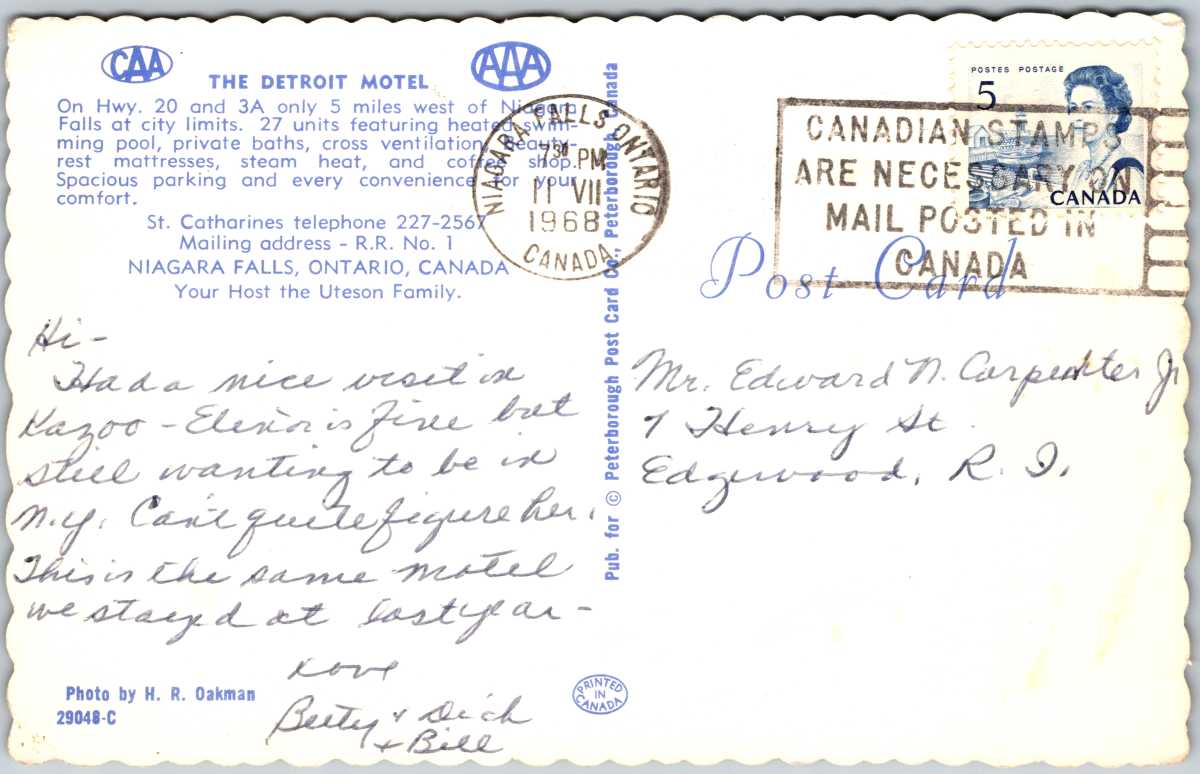 CAA
AAA
THE DETROIT MOTEL
On Hwy. 20 and 3A only 5 miles west of Niagara
Falls at city limits. 27 units featuring heated swim-
ming pool, private baths, cross ventilation, beauty-
rest mattresses, steam heat, and coffee shop.
Spacious parking and every convenience for your
comfort.
St. Catharines telephone 227-2567
Mailing address - R.R. No. 1
NIAGARA FALLS, ONTARIO, CANADA
Your Host the Uteson Family.
Hi-
Had a nice visit in
Kazoo - Elinor is fine but
still wanting to be in
N.Y. Can't quite figure her.
This is the same motel
we stayed at last year -
Love
Betty + Dick
+ Bill
Photo by H. R. Oakman
29048-C
Pub. for © Peterborough Post Card Co., Peterborough, Canada
PRINTED IN CANADA
NIAGARA FALLS ONTARIO
7 30 PM
11 VII
1968
CANADA
POSTES POSTAGE
5
CANADA
CANADIAN STAMPS
ARE NECESSARY ON
MAIL POSTED IN
CANADA
Post Card
Mr. Edward N. Carpenter Jr
7 Henry St.
Edgewood, R. I.